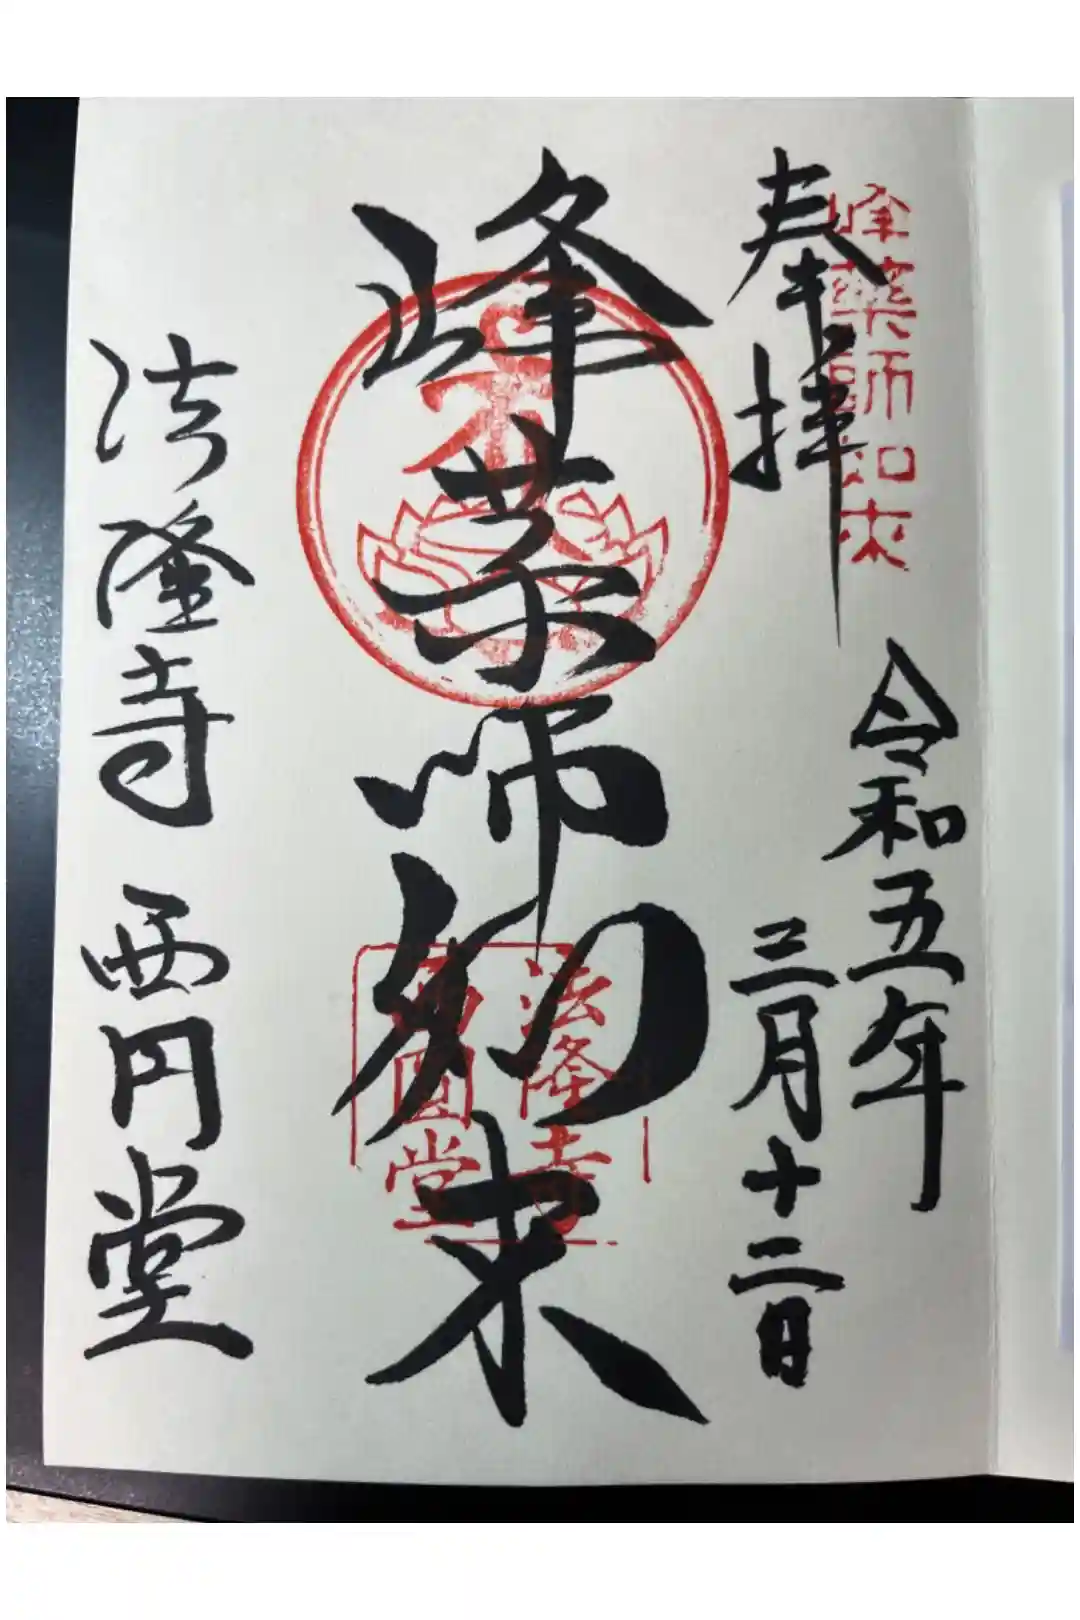 奉拝
峰薬師如来
令和五年
三月十二日
峰薬師如来
法隆寺
西圓堂
法隆寺 西円堂